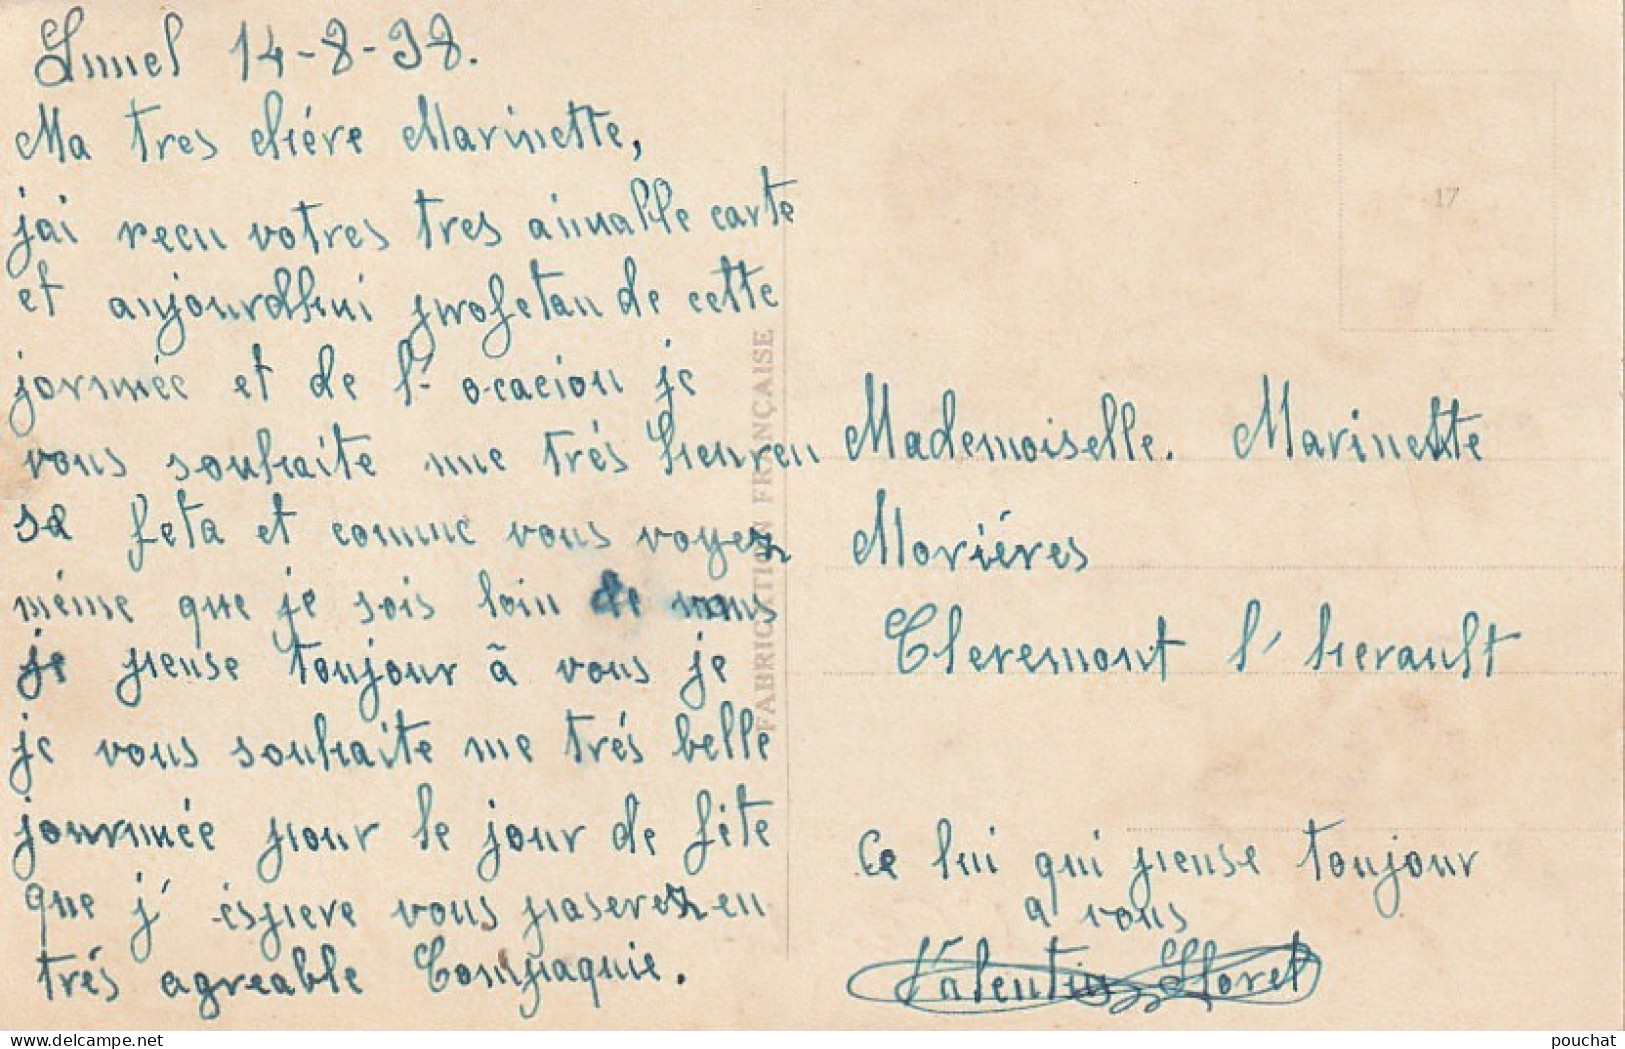 Lunel 14-8-38.
Ma tres chiére Marinette,
jai recu votres tres aimablle carte
et anjourdhui profetan de cette
jornnée et de l'ocacion je
vous souhaite une trés heureu
se feta et comme vous voyez
méme que je sois loin de vous
je pense toujour à vous je
je vous souhaite une trés belle
journnée pour le jour de féte
que j' espiere vous paserez en
trés agreable Compagnie.
FABRICATION FRANÇAISE
17
Mademoiselle. Marinette
Moriéres
Cleremont l' herault
Ce lui qui pense toujour
a vous
Valentin Lloret
www.delcampe.net
pouchat